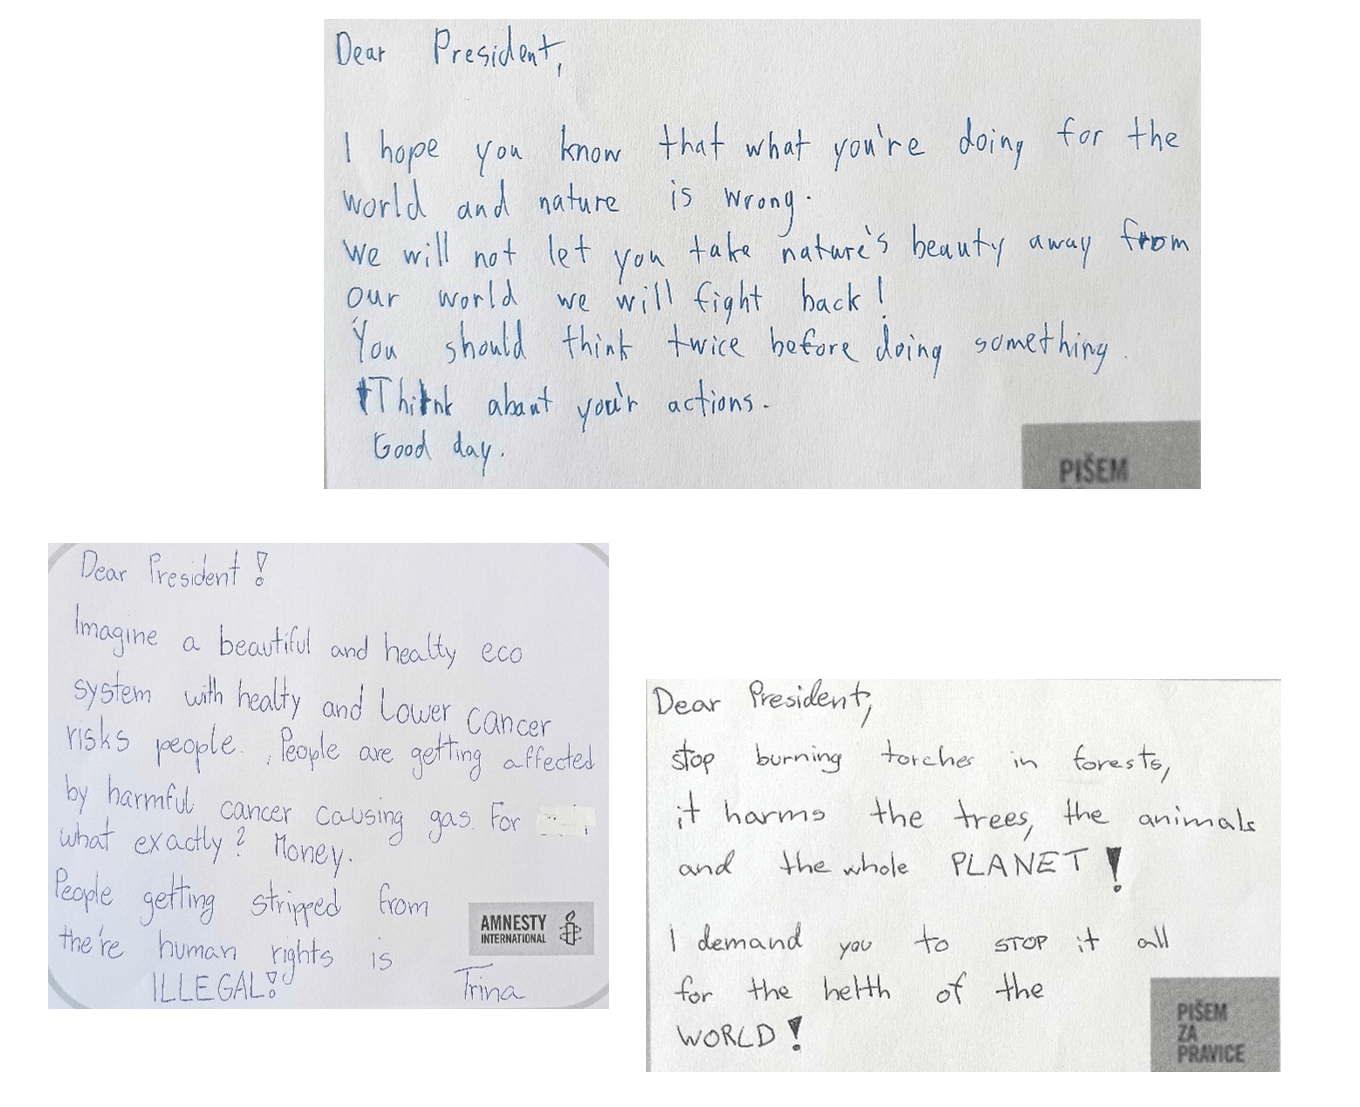 Dear President,
I hope you know that what you're doing for the
world and nature is wrong.
We will not let you take nature's beauty away from
our world we will fight back!
You should think twice before doing something.
Think about you'r actions.
Good day.
PIŠEM
Dear President!
Imagine a beautiful and healty eco
system with healty and Lower cancer
risks people. People are getting affected
by harmful cancer causing gas. For
what exactly? Money.
People getting stripped from
the're human rights is
ILLEGAL!
AMNESTY
INTERNATIONAL
Trina
Dear President,
stop burning torches in forests,
it harms the trees, the animals
and the whole PLANET!
I demand you to STOP it all
for the helth of the
WORLD!
PIŠEM
ZA
PRAVICE